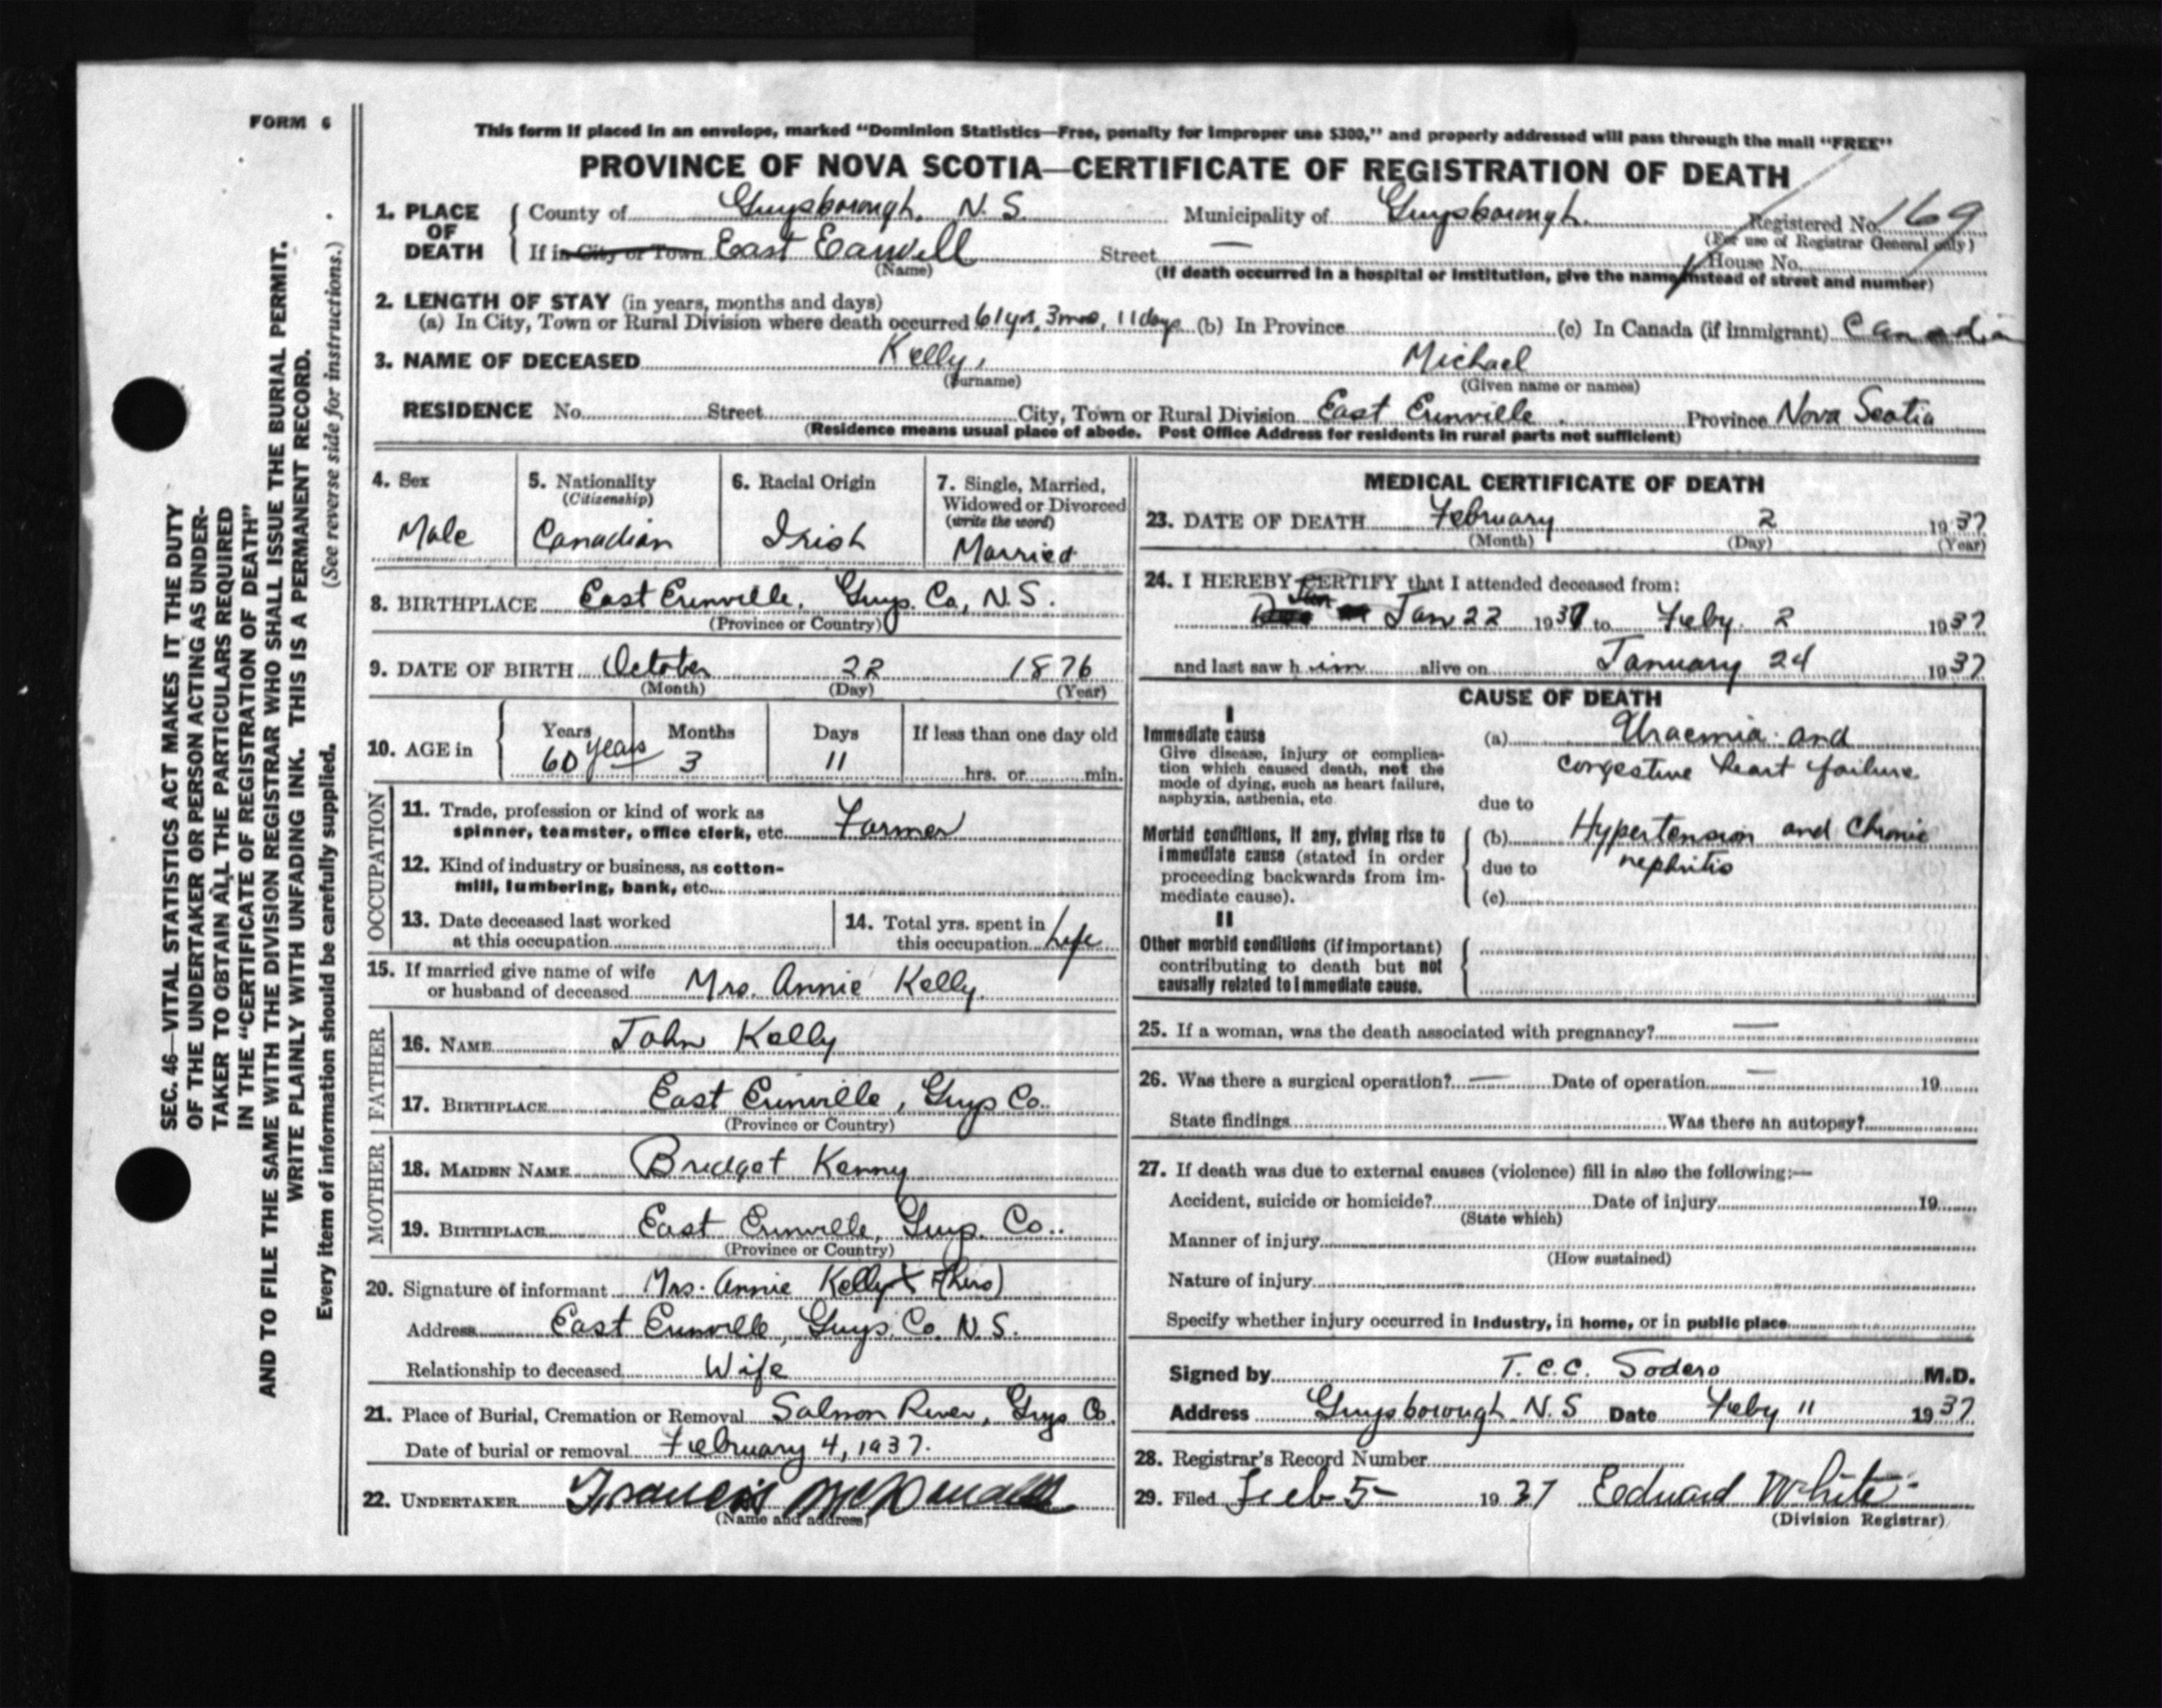 FORM 6
This form if placed in an envelope, marked “Dominion Statistics—Free, penalty for improper use $300,” and properly addressed will pass through the mail “FREE”
PROVINCE OF NOVA SCOTIA—CERTIFICATE OF REGISTRATION OF DEATH
1. PLACE OF DEATH { County of Guysborough, N.S. Municipality of Guysborough. Registered No. 169
(For use of Registrar General only)
If in City or Town East Street — House No.
(Name) (If death occurred in a hospital or institution, give the name instead of street and number)
2. LENGTH OF STAY (in years, months and days)
(a) In City, Town or Rural Division where death occurred 61 yrs, 3 mos, 11 days (b) In Province (c) In Canada (if immigrant) Canadia
3. NAME OF DECEASED Kelly, Michael
(Surname) (Given name or names)
RESIDENCE No. Street City, Town or Rural Division East Erinville. Province Nova Scotia
(Residence means usual place of abode. Post Office Address for residents in rural parts not sufficient)
4. Sex Male
5. Nationality (Citizenship) Canadian
6. Racial Origin Irish
7. Single, Married, Widowed or Divorced (write the word) Married
8. BIRTHPLACE East Erinville, Guys. Co, N.S.
(Province or Country)
9. DATE OF BIRTH October 22 1876
(Month) (Day) (Year)
10. AGE in { Years Months Days If less than one day old
60 years 3 11 hrs. or min.
OCCUPATION
11. Trade, profession or kind of work as
spinner, teamster, office clerk, etc. Farmer
12. Kind of industry or business, as cotton-
mill, lumbering, bank, etc.
13. Date deceased last worked
at this occupation
14. Total yrs. spent in
this occupation Life
15. If married give name of wife
or husband of deceased Mrs. Annie Kelly.
FATHER
16. NAME John Kelly
17. BIRTHPLACE East Erinville, Guys Co.
(Province or Country)
MOTHER
18. MAIDEN NAME Bridget Kenny
19. BIRTHPLACE East Erinville, Guys. Co..
(Province or Country)
20. Signature of informant Mrs. Annie Kelly X
Address East Erinville, Guys. Co. N.S.
Relationship to deceased Wife
21. Place of Burial, Cremation or Removal Salmon River, Guys Co.
Date of burial or removal February 4, 1937.
22. UNDERTAKER Francis
(Name and address)
MEDICAL CERTIFICATE OF DEATH
23. DATE OF DEATH February 2 1937
(Month) (Day) (Year)
24. I HEREBY CERTIFY that I attended deceased from:
Jan Jan 22 1937 to Feby. 2 1937
and last saw h im alive on January 24 1937
CAUSE OF DEATH
I
Immediate cause
Give disease, injury or complica-
tion which caused death, not the
mode of dying, such as heart failure,
asphyxia, asthenia, etc.
(a) Uraemia and
congestive heart failure
due to
Morbid conditions, if any, giving rise to
immediate cause (stated in order
proceeding backwards from im-
mediate cause).
(b) Hypertension and Chronic
due to nephritis
(c)
II
Other morbid conditions (if important)
contributing to death but not
causally related to immediate cause.
25. If a woman, was the death associated with pregnancy? —
26. Was there a surgical operation? — Date of operation — 19
State findings Was there an autopsy?
27. If death was due to external causes (violence) fill in also the following:—
Accident, suicide or homicide? Date of injury 19
(State which)
Manner of injury
(How sustained)
Nature of injury
Specify whether injury occurred in industry, in home, or in public place
Signed by T. C. C. Sodero M.D.
Address Guysborough N.S Date Feby 11 1937
28. Registrar's Record Number
29. Filed Feb 5- 1937 Edward White
(Division Registrar)
SEC. 46—VITAL STATISTICS ACT MAKES IT THE DUTY
OF THE UNDERTAKER OR PERSON ACTING AS UNDER-
TAKER TO OBTAIN ALL THE PARTICULARS REQUIRED
IN THE “CERTIFICATE OF REGISTRATION OF DEATH”
AND TO FILE THE SAME WITH THE DIVISION REGISTRAR WHO SHALL ISSUE THE BURIAL PERMIT.
WRITE PLAINLY WITH UNFADING INK. THIS IS A PERMANENT RECORD.
Every item of information should be carefully supplied. (See reverse side for instructions.)